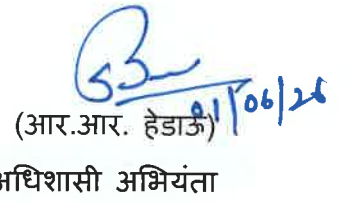 01/06/26
(आर.आर. हेडाऊ)
अधिशासी अभियंता